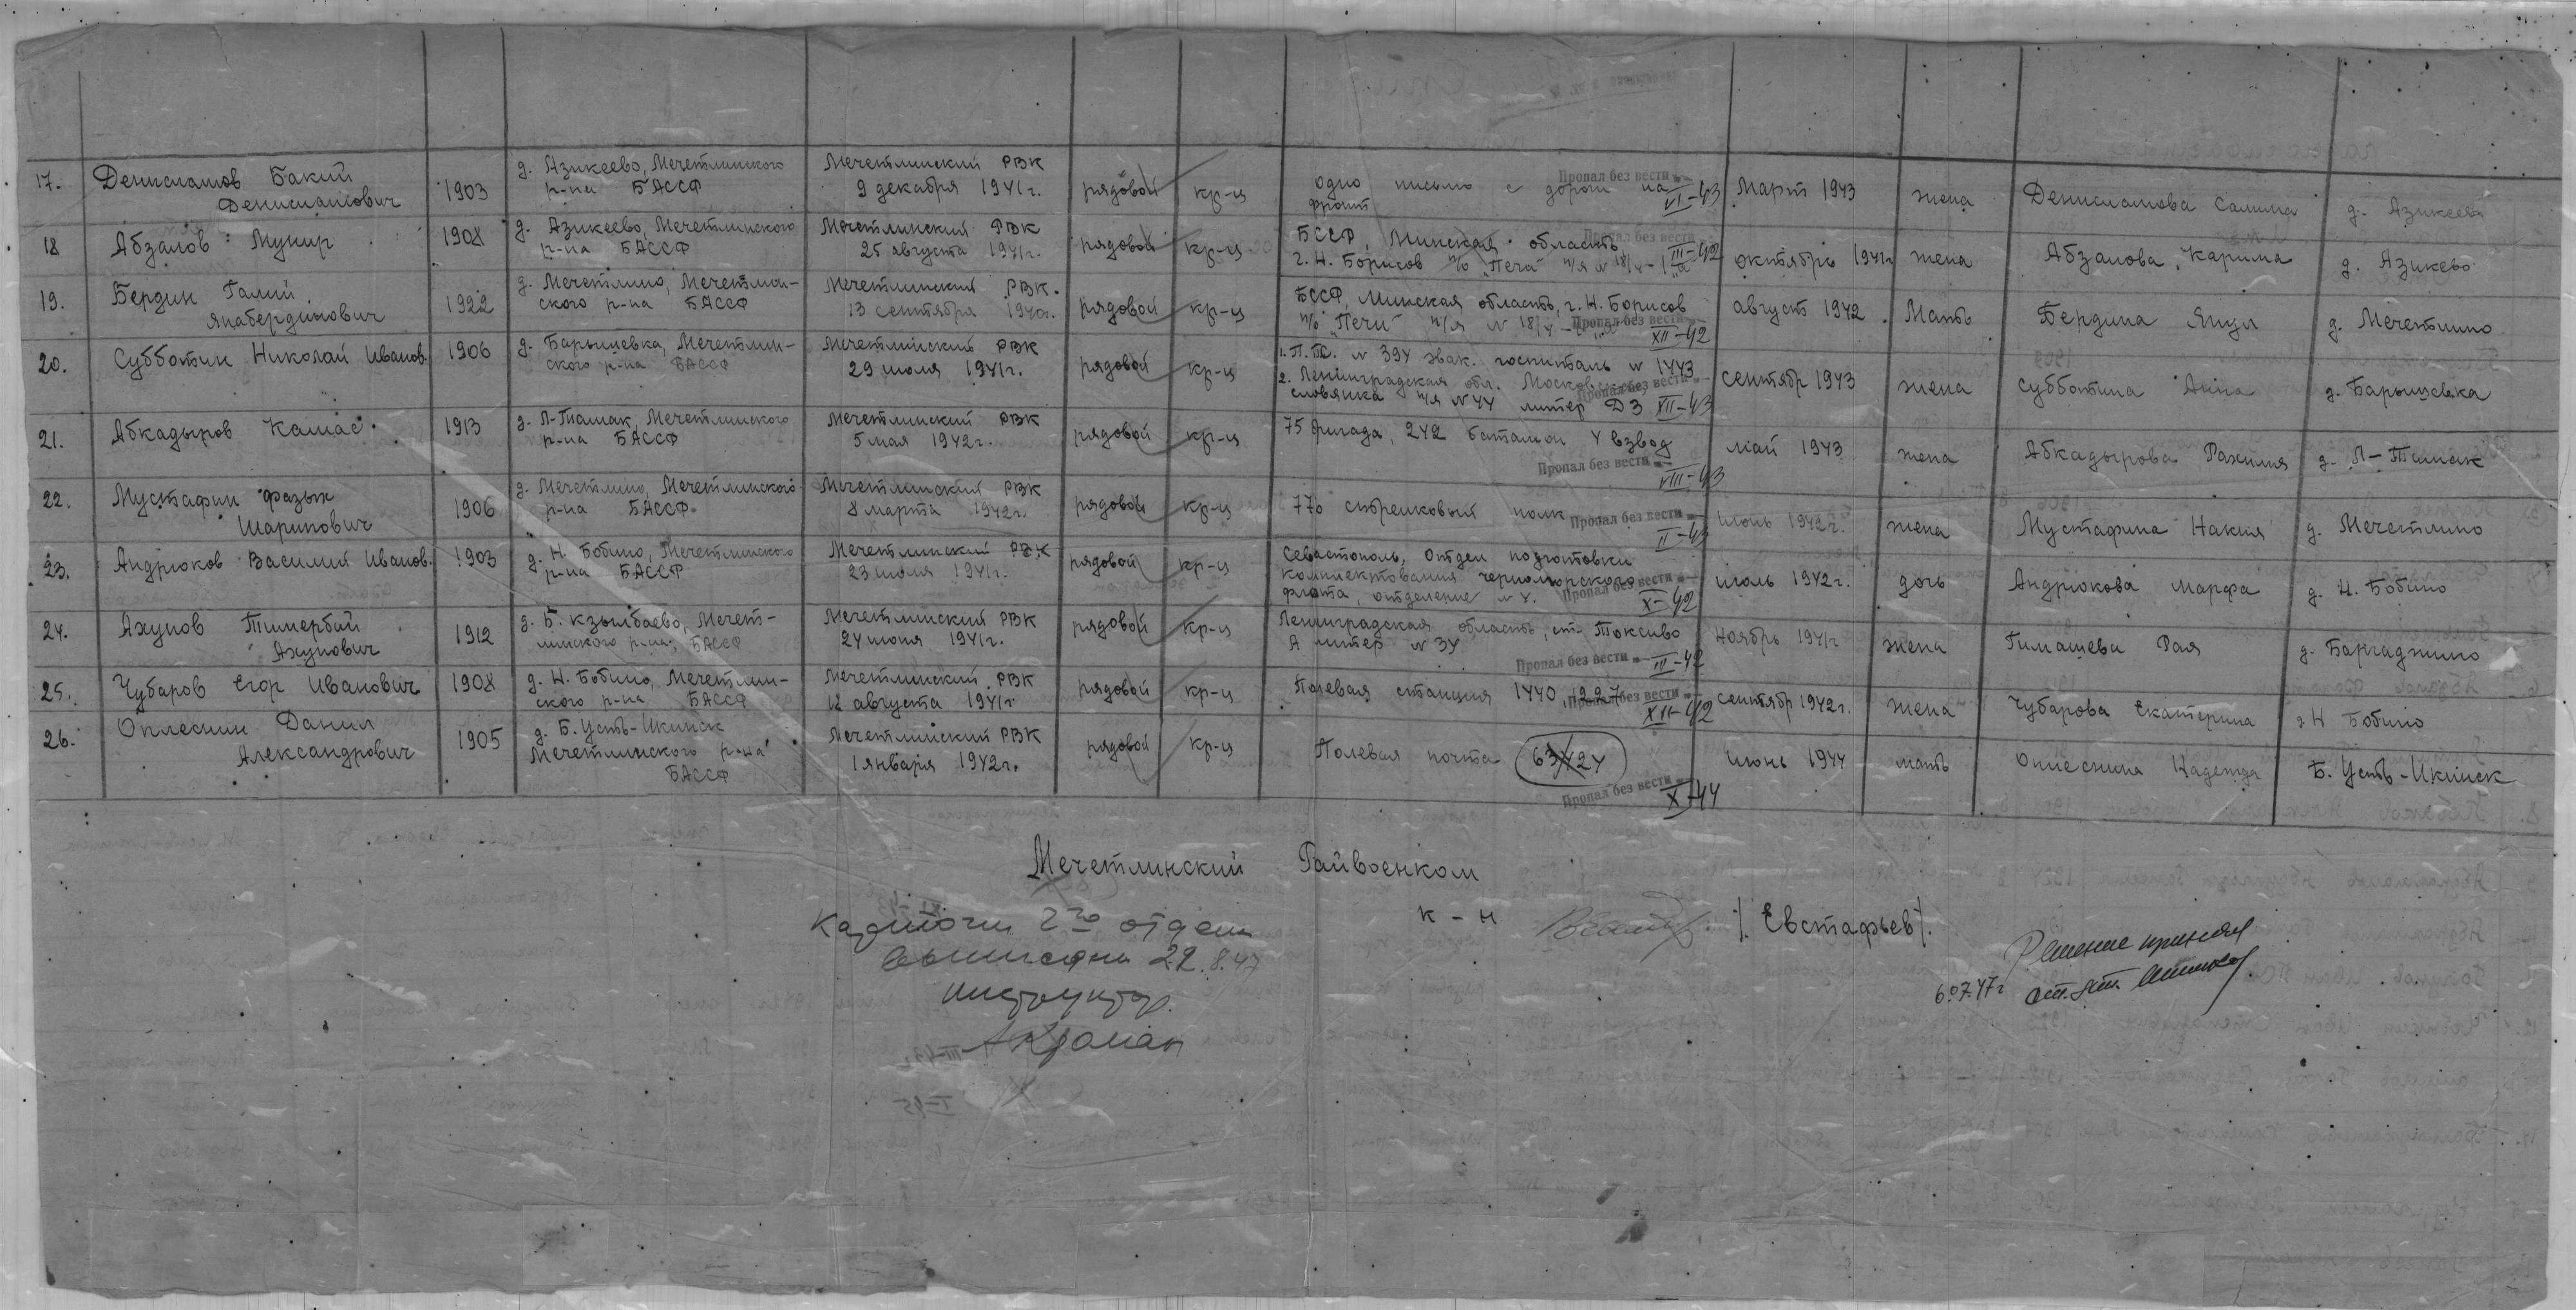 17. Денисламов Бакий Денисламович 1903 д. Азикеево, Мечетлинского р-на БАССР Мечетлинский РВК 9 декабря 1941г. рядовой кр-ц одно письмо с дороги на фронт Пропал без вести VI-43 Март 1943 жена Денисламова Салима д. Азикеево
18 Абзалов Мунир 1908 д. Азикеево, Мечетлинского р-на БАССР Мечетлинский РВК 25 августа 1941г. рядовой кр-ц БССР, Минская область г. Н. Борисов п/о "Печа" п/я N 18/4 Пропал без вести III-42 октябрь 1941г жена Абзалова Карима д. Азикево
19. Бердин Галий Янабердинович 1922 д. Мечетлино, Мечетлинского р-на БАССР Мечетлинский РВК. 13 сентября 1940г. рядовой кр-ц БССР, Минская область, г. Н. Борисов п/о "Печи" п/я N 18/4 Пропал без вести XII-42 август 1942. Мать Бердина Янул д. Мечетлино
20. Субботин Николай Иванов. 1906 д. Барышевка, Мечетлинского р-на БАССР Мечетлинский РВК 29 июля 1941г. рядовой кр-ц 1. П.П.С. N 394 эвак. госпиталь N 1443 2. Ленинградская обл. Москов. словянка п/я N 44 литер Д3 Пропал без вести XII-43 сентябр 1943 жена Субботина Анна д. Барышевка
21. Абкадыров Камас 1913 д. Л-Ташак, Мечетлинского р-на БАССР Мечетлинский РВК 5 мая 1942г. рядовой кр-ц 75 бригада, 242 баталион 4 взвод Пропал без вести VIII-43 май 1943 жена Абкадырова Рахимя д. Л-Ташак
22. Мустафин Фазых Шарипович 1906 д. Мечетлино, Мечетлинского р-на БАССР. Мечетлинский РВК 8 марта 1942г. рядовой кр-ц 770 стрелковый полк Пропал без вести II-43 1942г. жена Мустафина Накия д. Мечетлино
23. Андрюков Василий Иванов. 1903 д. Н. Бобино, Мечетлинского р-на БАССР Мечетлинский РВК 23 июля 1941г. рядовой кр-ц Севастополь, отдел подготовки комплектования черноморского флота, отделение N 4. Пропал без вести X-42 июль 1942г. дочь Андрюкова Марфа д. Н. Бобино
24. Ахунов Тимербай Ахунович 1912 д. Б. Кзылбаево, Мечетлинского р-на, БАССР Мечетлинский РВК 24 июня 1941г. рядовой кр-ц Ленинградская область, ст. Токсиво А литер N 34 Пропал без вести III-42 Ноябрь 1941г жена Гимашева Рая д. Баргаджино
25. Чубаров Егор Иванович 1908 д. Н. Бобино, Мечетлинского р-на БАССР Мечетлинский РВК 12 августа 1941г рядовой кр-ц Полевая станция 1440 Пропал без вести XII-42 Сентябр 1942г. жена Чубарова Екатерина д Н Бобино
26. Оплеснин Данил Александрович 1905 д. Б. Усть-Икинск Мечетлинского р-на БАССР Мечетлинский РВК 1 января 1942г. рядовой кр-ц Полевая почта 63424 Пропал без вести X-44 июнь 1944 мать Оплеснина Надежда Б. Усть-Икинск
Мечетлинский Райвоенком
к-н /Евстафьев/.
Карточки 2го отдела
выписаны 22.8.47
инструктор.
Решение принял
6.07.47г ст. лт.